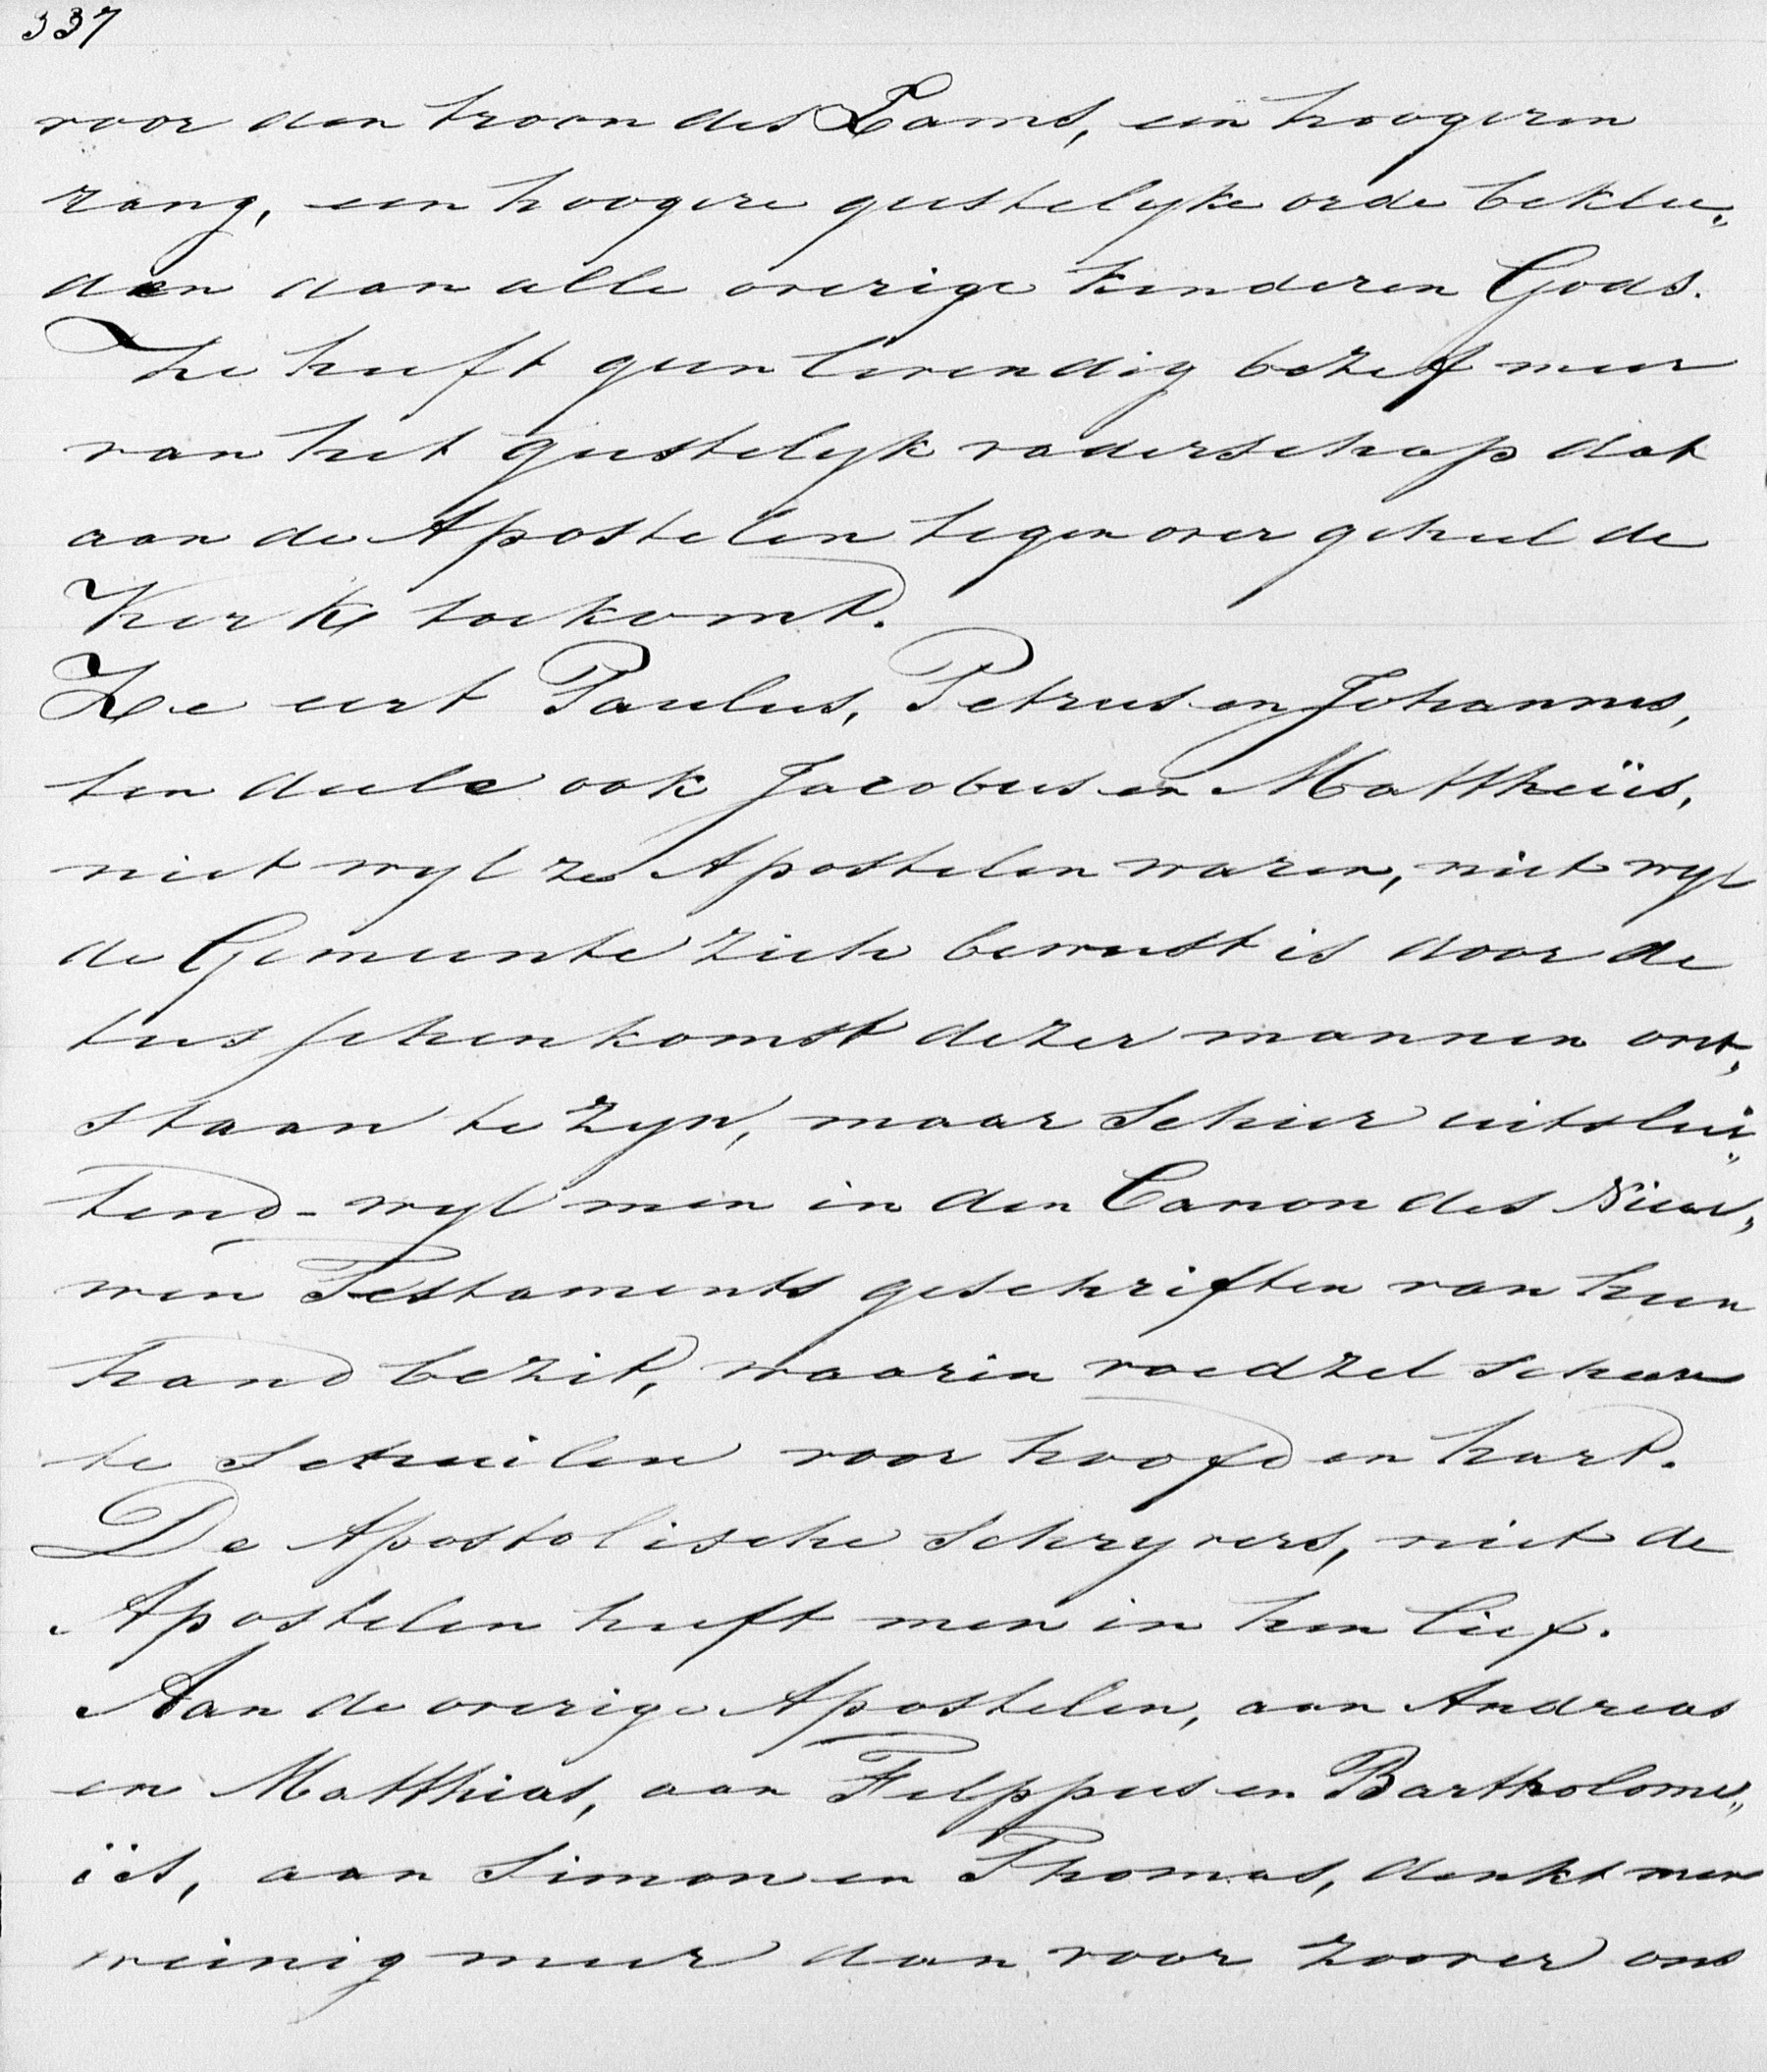 337
voor den troon des Lams, een hoogeren
rang, een hoogere geestelyke orde beklee„
den dan alle overige kinderen Gods.
Ze heeft geen levendig bezef meer
van het geestelyk vaderschap dat
aan de Apostelen tegenover geheel de
Kerk toekomt.
Ze eert Paulus, Petrus en Johannes,
ten deele ook Jacobus en Mattheüs,
niet wyl ze Apostelen waren, niet wyl
de Gemeente zich bewust is door de
tusschenkomst dezer mannen ont„
staan te zyn, maar schier uitslui„
tend - wyl men in den Canon des Nieu„
wen Testaments geschriften van hun
hand bezit, waarin voedzel scheen
te schuilen voor hoofd en hart.
De Apostolische schryvers, niet de
Apostelen heeft men in hen lief.
Aan de overige Apostelen, aan Andreas
en Matthias, aan Filppus en Bartholome„
üs, aan Simon en Thomas, denkt men
weinig meer dan voor zoover ons